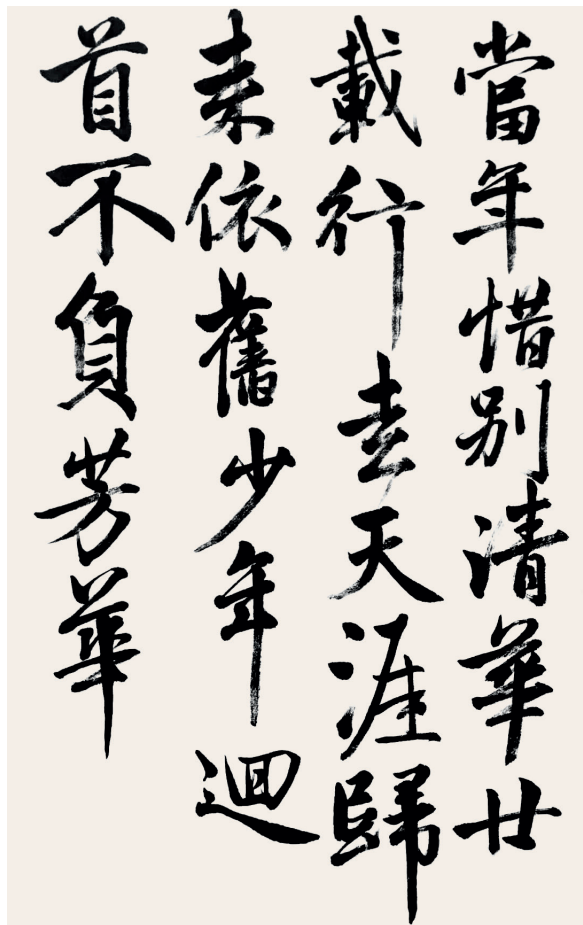 當年惜別清華廿
載行走天涯歸
來依舊少年迴
首不負芳華